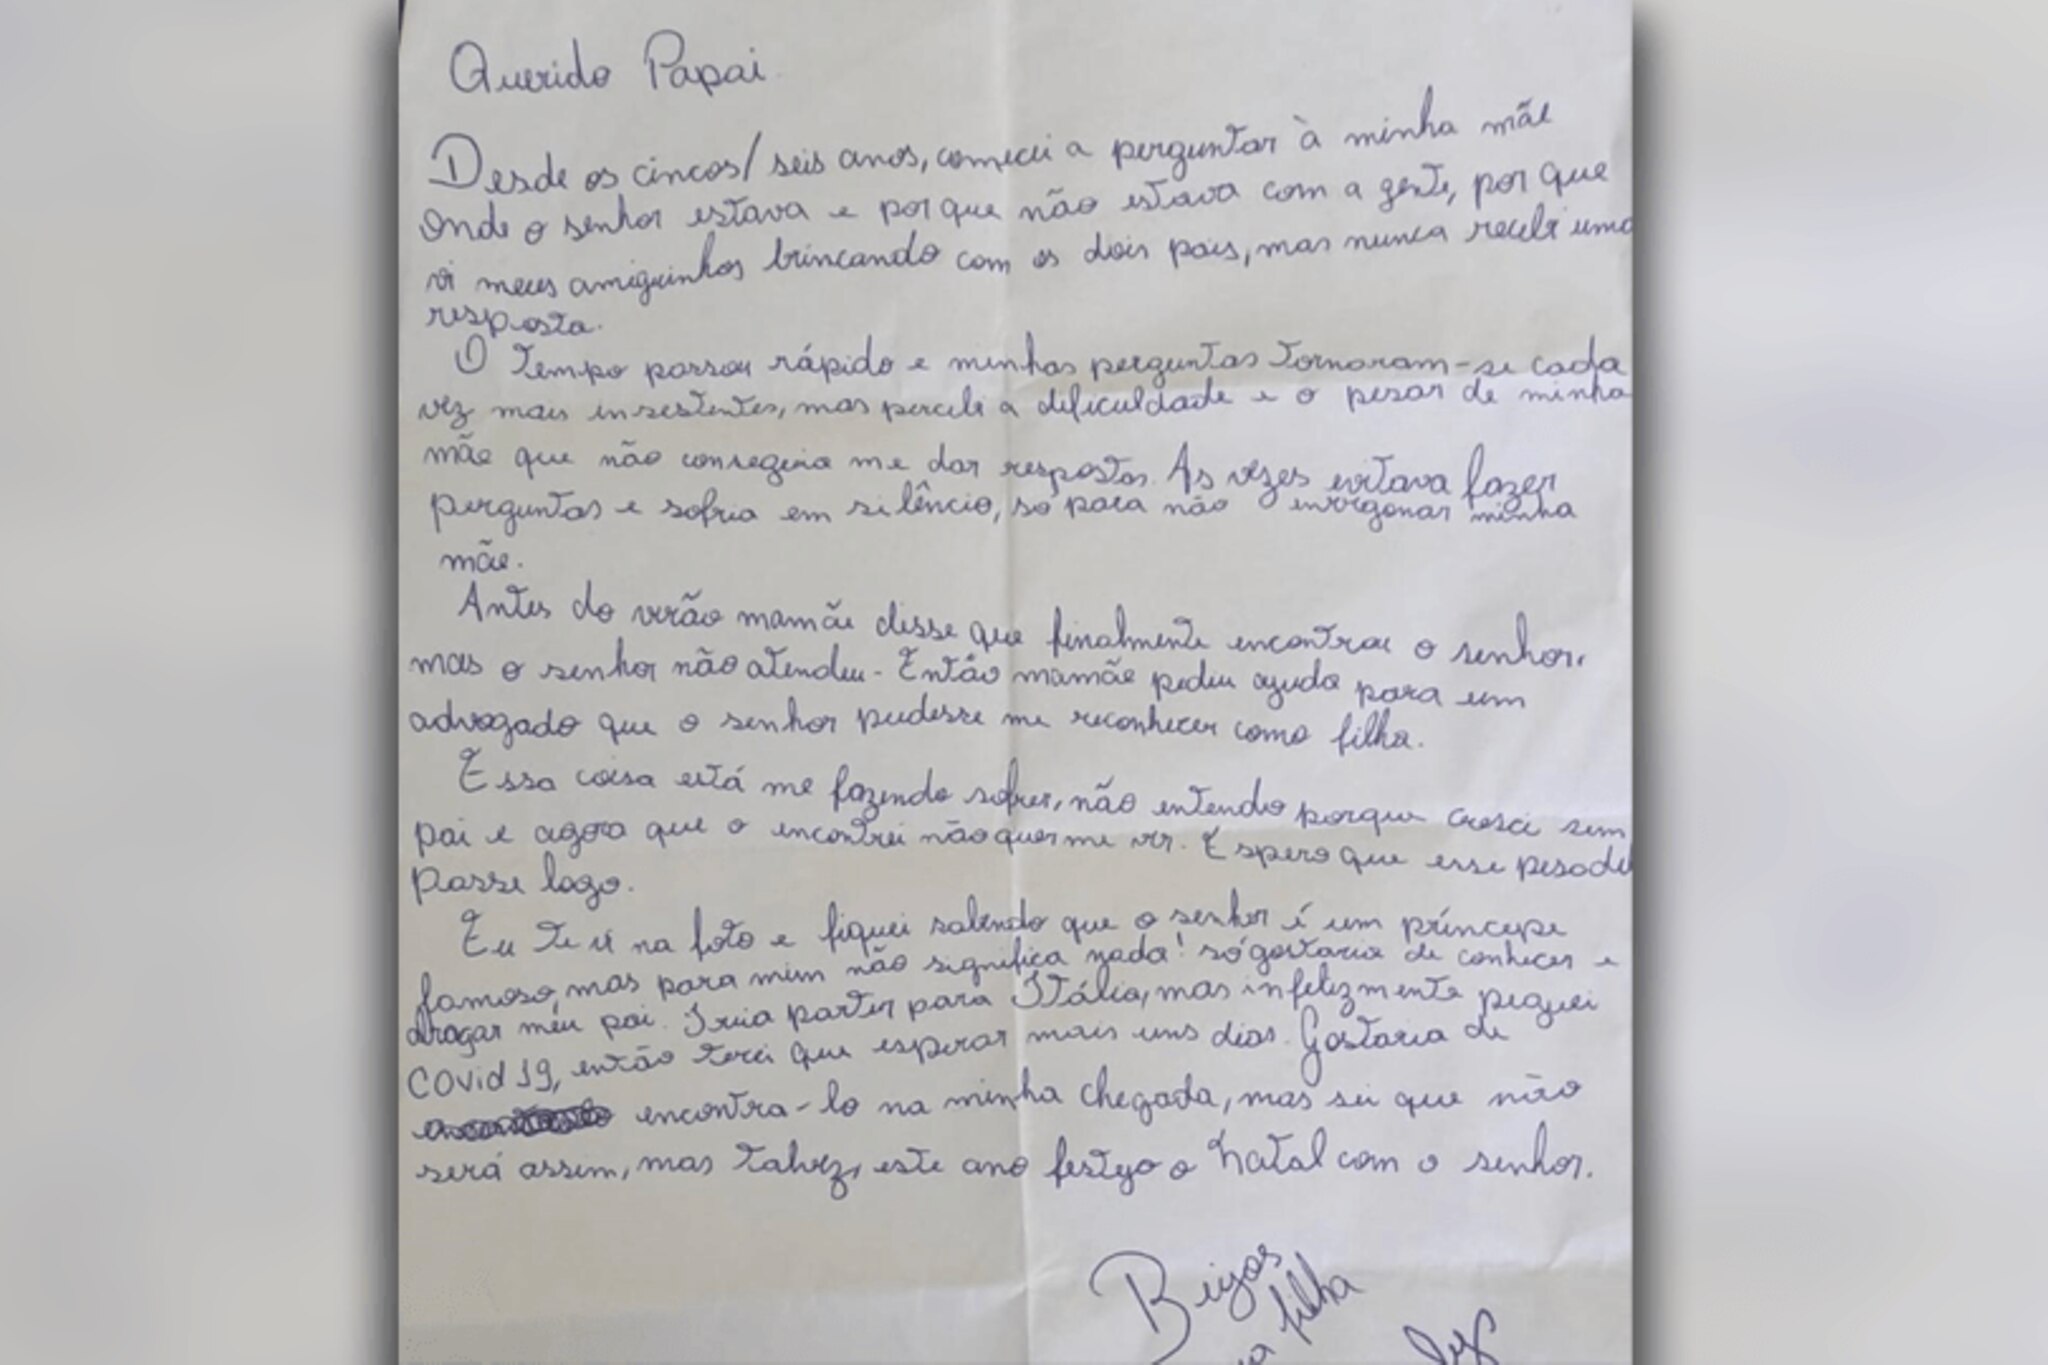 Querido Papai
Desde os cincos/seis anos, comecei a perguntar à minha mãe
onde o senhor estava e por que não estava com a gente, por que
vi meus amiguinhos brincando com os dois pais, mas nunca recebi uma
resposta.
O tempo passou rápido e minhas perguntas tornaram-se cada
vez mais insistentes, mas percebi a dificuldade e o pesar de minha
mãe que não conseguia me dar respostas. As vezes evitava fazer
perguntas e sofria em silêncio, só para não envergonar minha
mãe.
Antes do verão mamãe disse que finalmente encontrou o senhor,
mas o senhor não atendeu. Então mamãe pediu ajuda para um
advogado que o senhor pudesse me reconhecer como filha.
Essa coisa está me fazendo sofrer, não entendo porque cresci sem
pai e agora que o encontrei não quer me ver. Espero que esse pesadel
passe logo.
Eu te vi na foto e fiquei sabendo que o senhor é um príncipe
famoso, mas para mim não significa nada! só gostaria de conhecer e
abraçar meu pai. Iria partir para Itália, mas infelizmente peguei
Covid 19, então terei que esperar mais uns dias. Gostaria de
encontra-lo na minha chegada, mas sei que não
será assim, mas talvez, este ano festejo o Natal com o senhor.
Beijos
filha